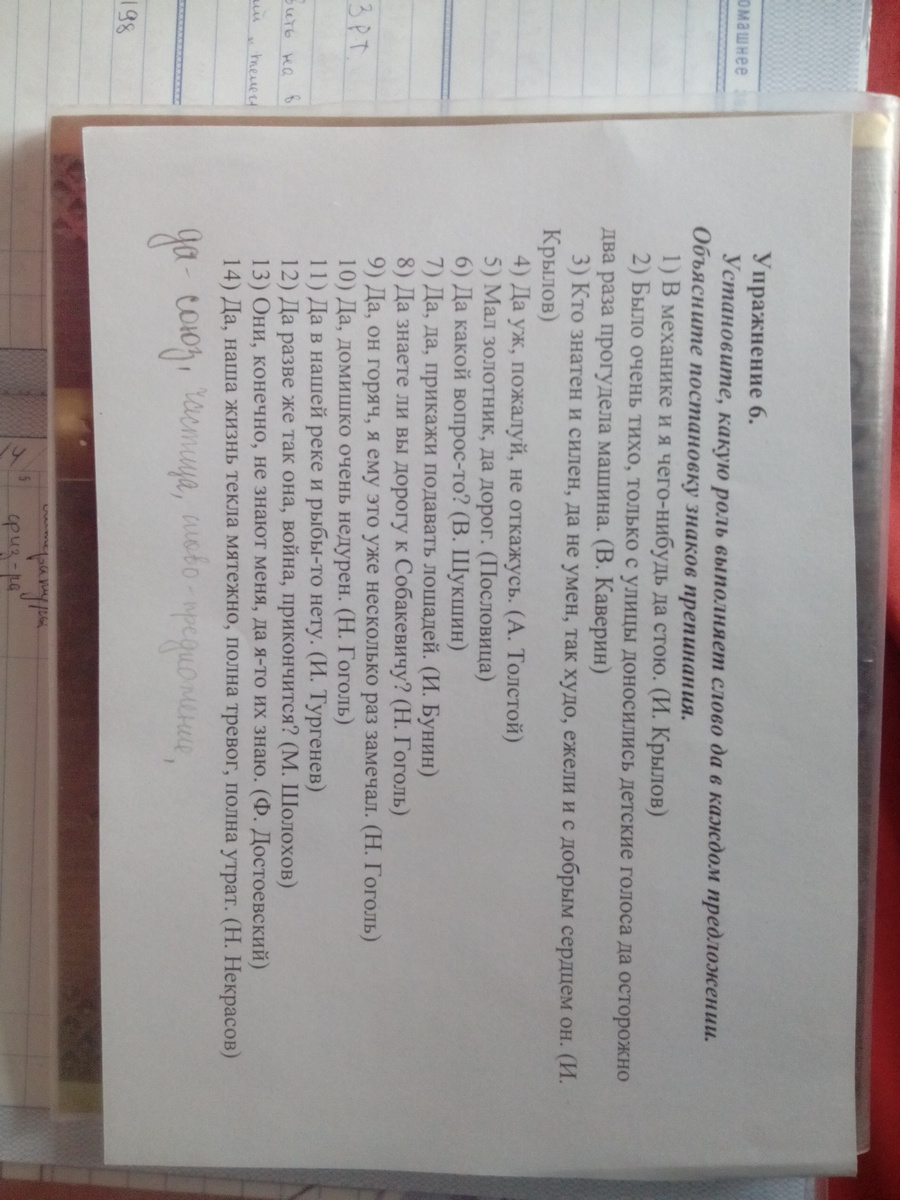 Упражнение 6.
Установите, какую роль выполняет слово да в каждом предложении.
Объясните постановку знаков препинания.
1) В механике и я чего-нибудь да стою. (И. Крылов)
2) Было очень тихо, только с улицы доносились детские голоса да осторожно
два раза прогудела машина. (В. Каверин)
3) Кто знатен и силен, да не умен, так худо, ежели и с добрым сердцем он. (И.
Крылов)
4) Да уж, пожалуй, не откажусь. (А. Толстой)
5) Мал золотник, да дорог. (Пословица)
6) Да какой вопрос-то? (В. Шукшин)
7) Да, да, прикажи подавать лошадей. (И. Бунин)
8) Да знаете ли вы дорогу к Собакевичу? (Н. Гоголь)
9) Да, он горяч, я ему это уже несколько раз замечал. (Н. Гоголь)
10) Да, домишко очень недурен. (Н. Гоголь)
11) Да в нашей реке и рыбы-то нету. (И. Тургенев)
12) Да разве же так она, война, прикончится? (М. Шолохов)
13) Они, конечно, не знают меня, да я-то их знаю. (Ф. Достоевский)
14) Да, наша жизнь текла мятежно, полна тревог, полна утрат. (Н. Некрасов)
да - союз, частица, слово-предложение,
омашнее
198
3 РТ
вить на в
14